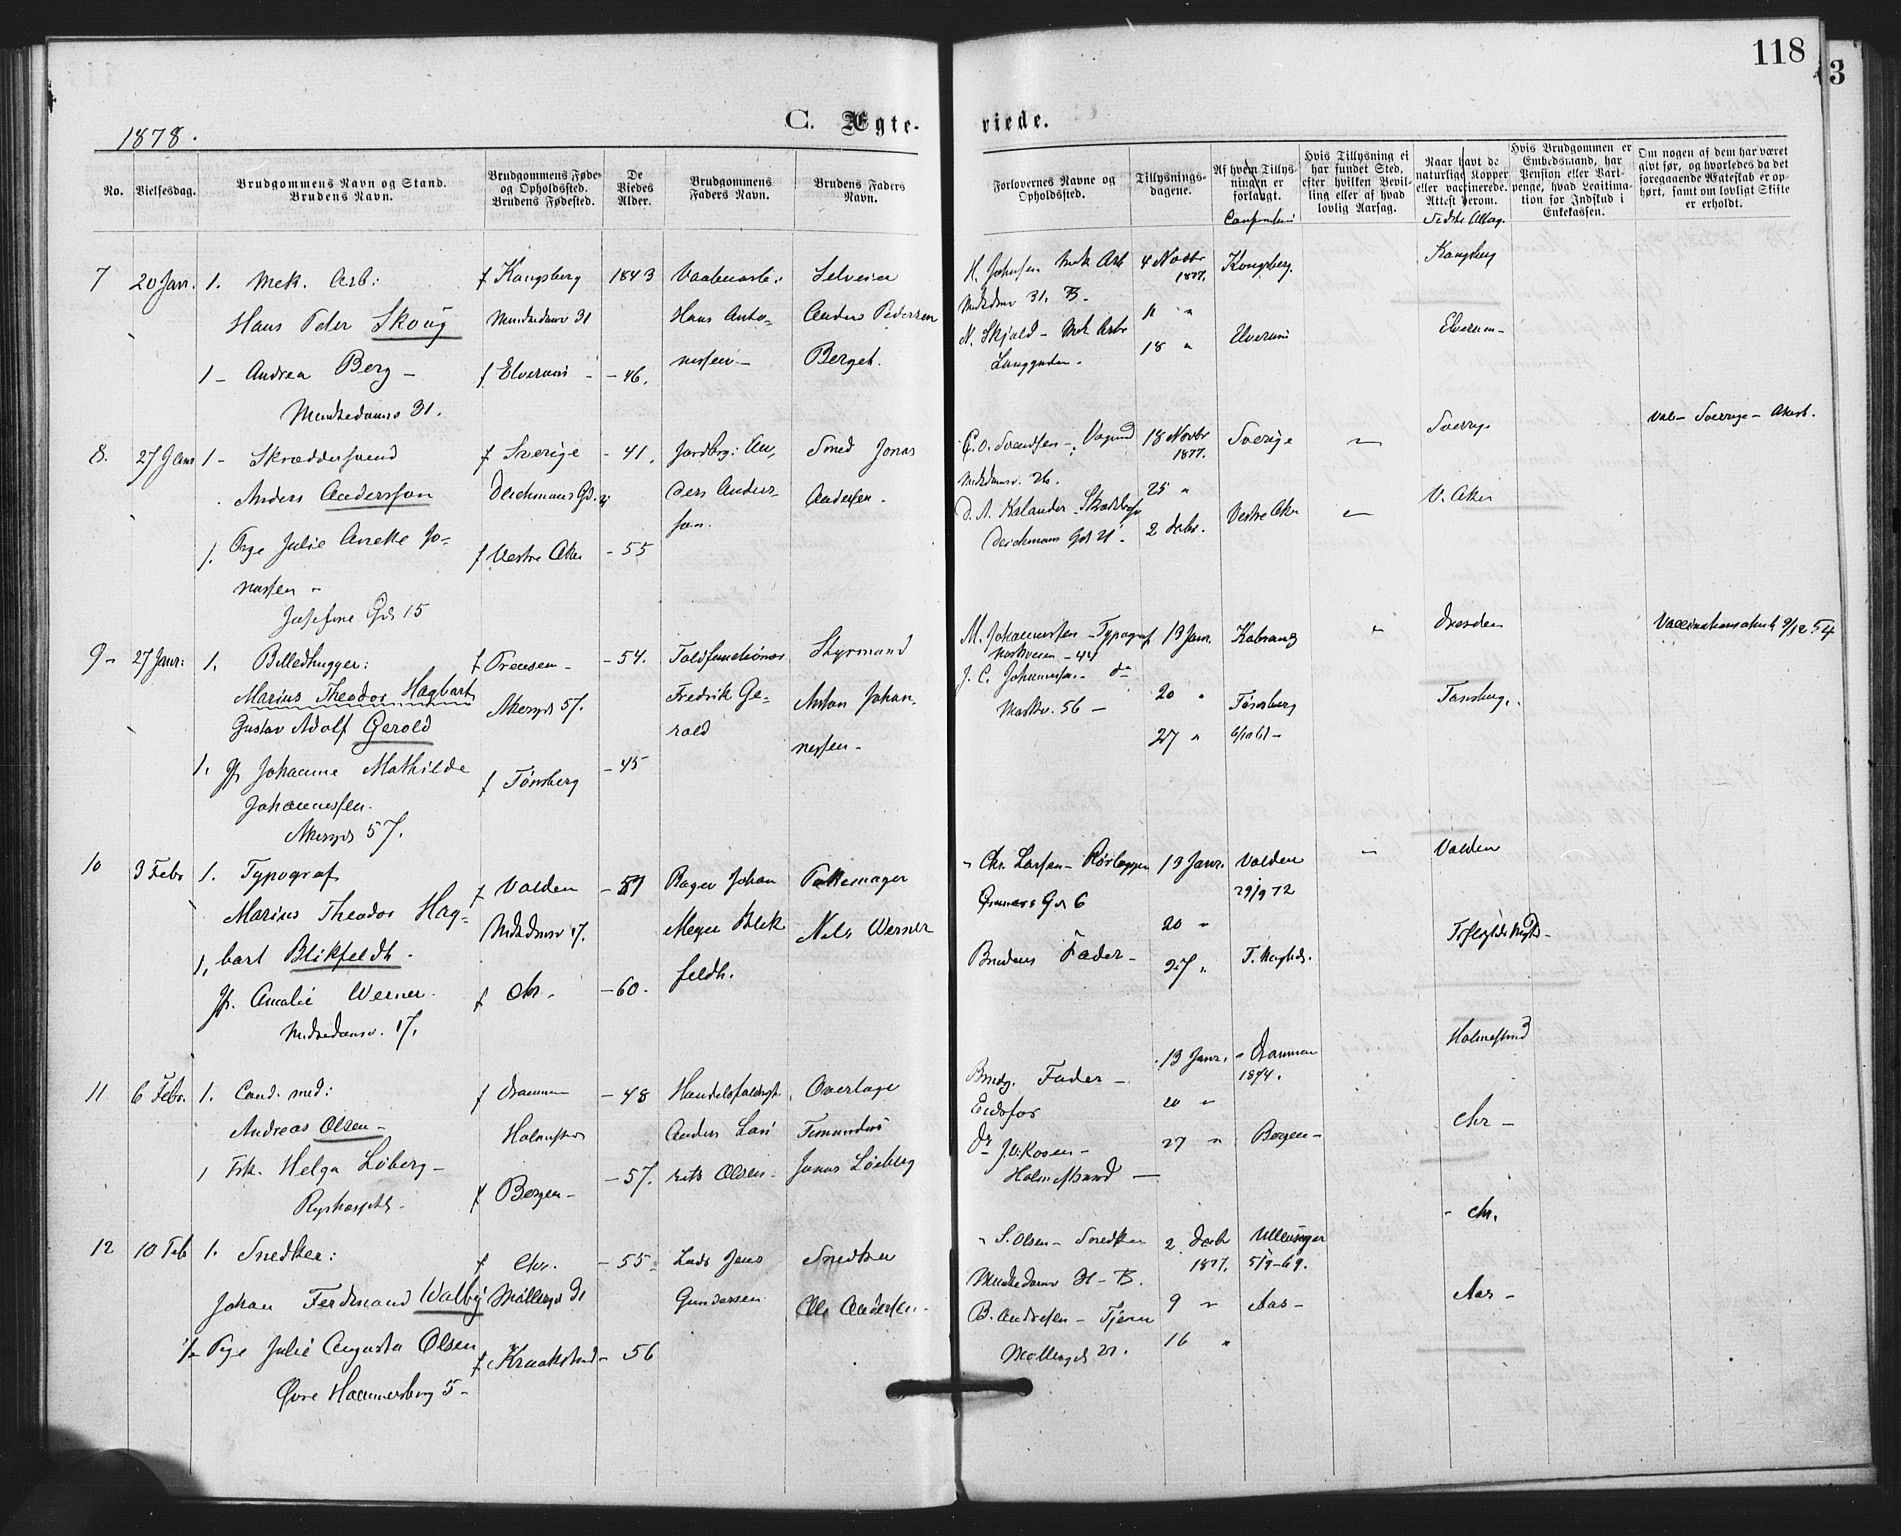 118
3
1878.
C. Ægte-
viede.
No.
Vielsesdag.
Brudgommens Navn og Stand.
Brudens Navn.
Brudgommens Føde-
og Opholdssted.
Brudens Fødested.
De
Viedes
Alder.
Brudgommens
Faders Navn.
Brudens Faders
Navn.
Forlovernes Navne og
Opholdssted.
Tillysnings-
dagene.
Af hvem Tillys-
ningen er
forlangt.
Hvis Tillysning ei
har fundet Sted,
efter hvilken Bevil-
ling eller af hvad
lovlig Aarsag.
Naar havt de
naturlige Kopper
eller vaccinerede.
Attest derom.
Hvis Brudgommen er
Embedsmand, har
Pension eller Vart-
penge, hvad Legitima-
tion for Indskud i
Enkekassen.
Om nogen af dem har været
givt før, og hvorledes da det
foregaaende Ægteskab er op-
hørt, samt om lovligt Skifte
er erholdt.
7
20 Jan.
1. Mek. Arb:
Hans Peter Skoug
1 - Andrea Berg -
Munkedamsv 31.
f Kongsberg
Munkedamsv 31
f Elverum -
1843
- 46.
Vaabenarb:
Hans Anto-
nessen -
Selveier
Anders Pedersen
Berget.
H. Johnsen Mek Arb
31. B.
N. Skjold - Mek Arb
Langgaden.
4 Novbr
1877.
11 "
18 "
Kongsberg.
Elverum
Kongsberg
Elverum -
8.
27 Janr
1 - Skræddersvend
Anders Andersson
1. Pige Julie Anette Jo-
nassen -
Josefine Gd 15
f Sverige
Deichmans Gd. 21
f Vestre Aker
- 41.
- 55
Jordbrg: An-
ders Anders-
son.
Smed Jonas
Andersen.
Svendsen - Vognmd
26.
Deichmans Gd 21.
18 Novbr
1877.
25 "
2 Decbr.
Sverige
Vestre Aker
Sverrige
V. Aker
Sverrige - Attest.
9 -
27 Janr:
1. Billedhugger:
Marius Theodor Hagbart
Gustav Adolf Gerold
1. Jfr Johanne Mathilde
Johannessen.
Akersgd 57.
f Preusen -
Akersgd 57.
f Tönsberg
- 54.
- 45
Toldfunctionær
Fredrik Ge-
rold
Styrmand
Anton Johan-
nessen -
M. Johannessen - Typograf
- 44
J. C. Johannesen - do
56 -
13 Janr.
20 "
27 "
Tönsberg
Dresden
Tønsberg.
Vaccinationsattest 9/12 54
10
3 Febr
1. Typograf
Marius Theodor Hag-
bart Blikfeldt.
1. Jfr. Amalie Werner.
Munkedamsv. 17.
f Volden
Mkdamsv 17.
f Chr.
- 51
- 60.
Bager Johan
Meyer Blik
feldt.
Pottemager
Nils Werner
Chr. Larsen - Rörlægger
Grønners Gd 6
Brudens Fader -
13 Janr.
20 "
27 "
Volden
29/9 72
Volden
11
6 Febr.
1. Cand. med:
Andreas Olsen -
1 Frk. Helga Löberg -
Rigshospitl.
f Drammen
Holmestrd
f Bergen -
- 48
- 57.
Anders Lau-
rits Olsen.
Overlæge
Timundus
Jonas Löberg
Brudg. Fader -
Eidsfos
Dr J. C. Kosen -
Holmestrand -
13 Janr.
20 "
27 "
Drammen
1874.
Bergen -
Holmestrand
Chr -
12
10 Feb
1. Snedker:
Johan Ferdinand Walby
1 - Pige Julie Augusta Olsen
Övre Hammersborg 5 -
f Chr.
Møllergd 21
f Kraakstad
- 55 -
- 56
Lods Jens
Gundersen
Snedker
Ole Andersen -
S. Olsen - Snedker
Munkedamsv 31 - B.
B. Andresen - Tjener
Møllergd 21.
2. Decb
1877.
9 "
16 "
Ullensager
5/9 - 69.
Aas -
- Chr.
Aas -